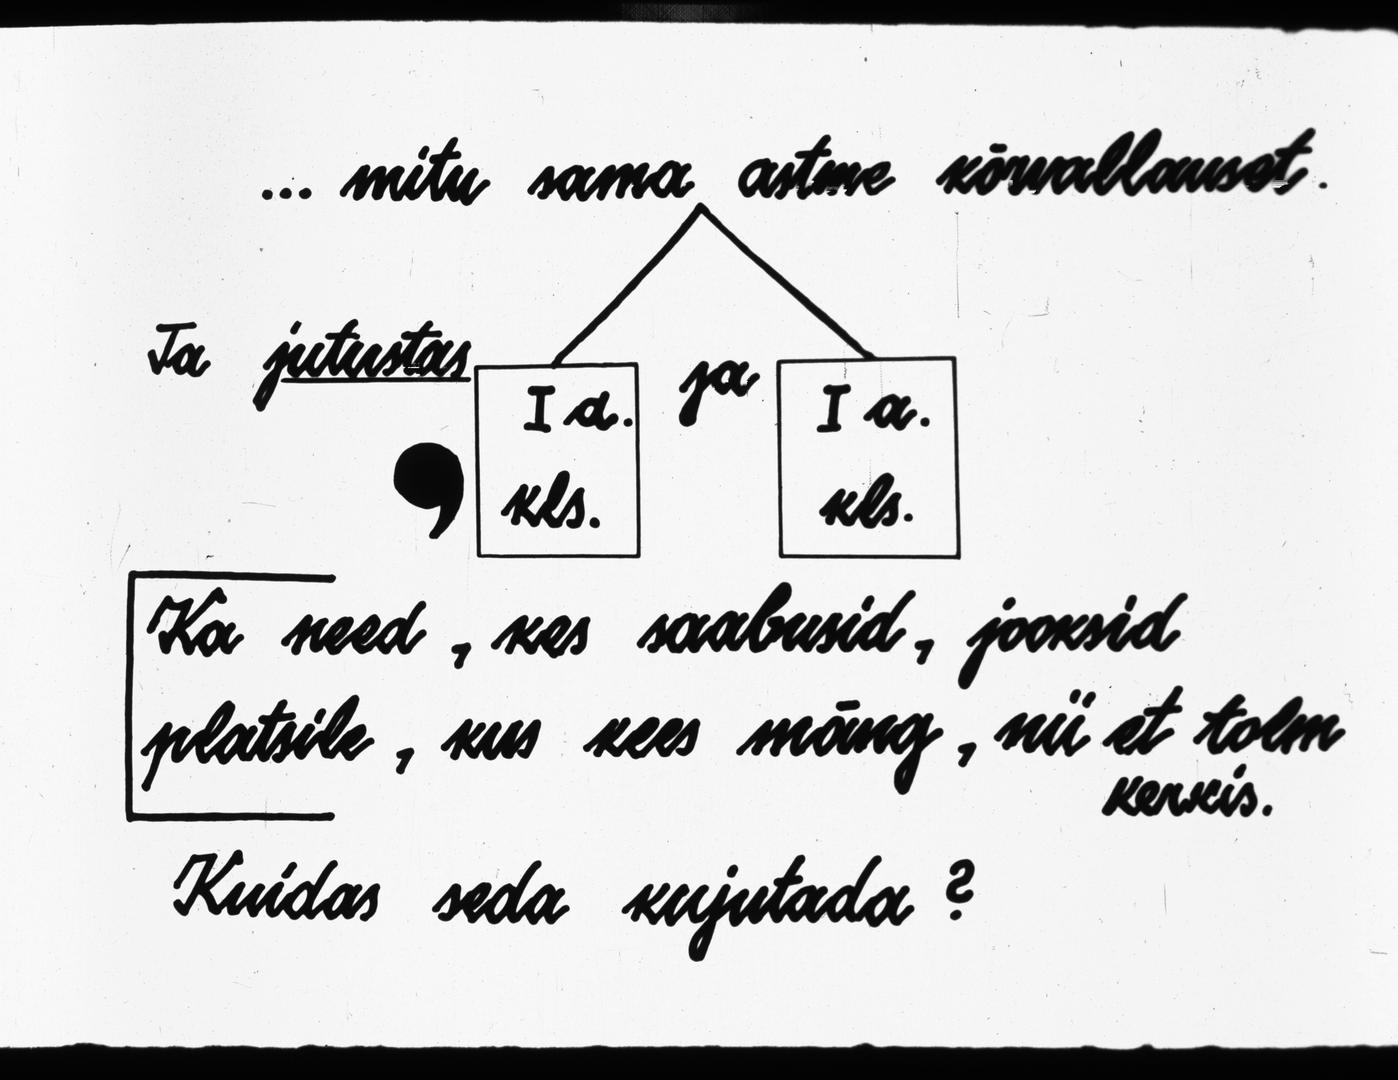 ... mitu sama astme kõrvallauset.
Ta jutustas
I a. ja I a.
, kls. kls.
Ka need, kes saabusid, jooksid
platsile, kus kees mäng, nii et tolm
kerkis.
Kuidas seda kujutada?